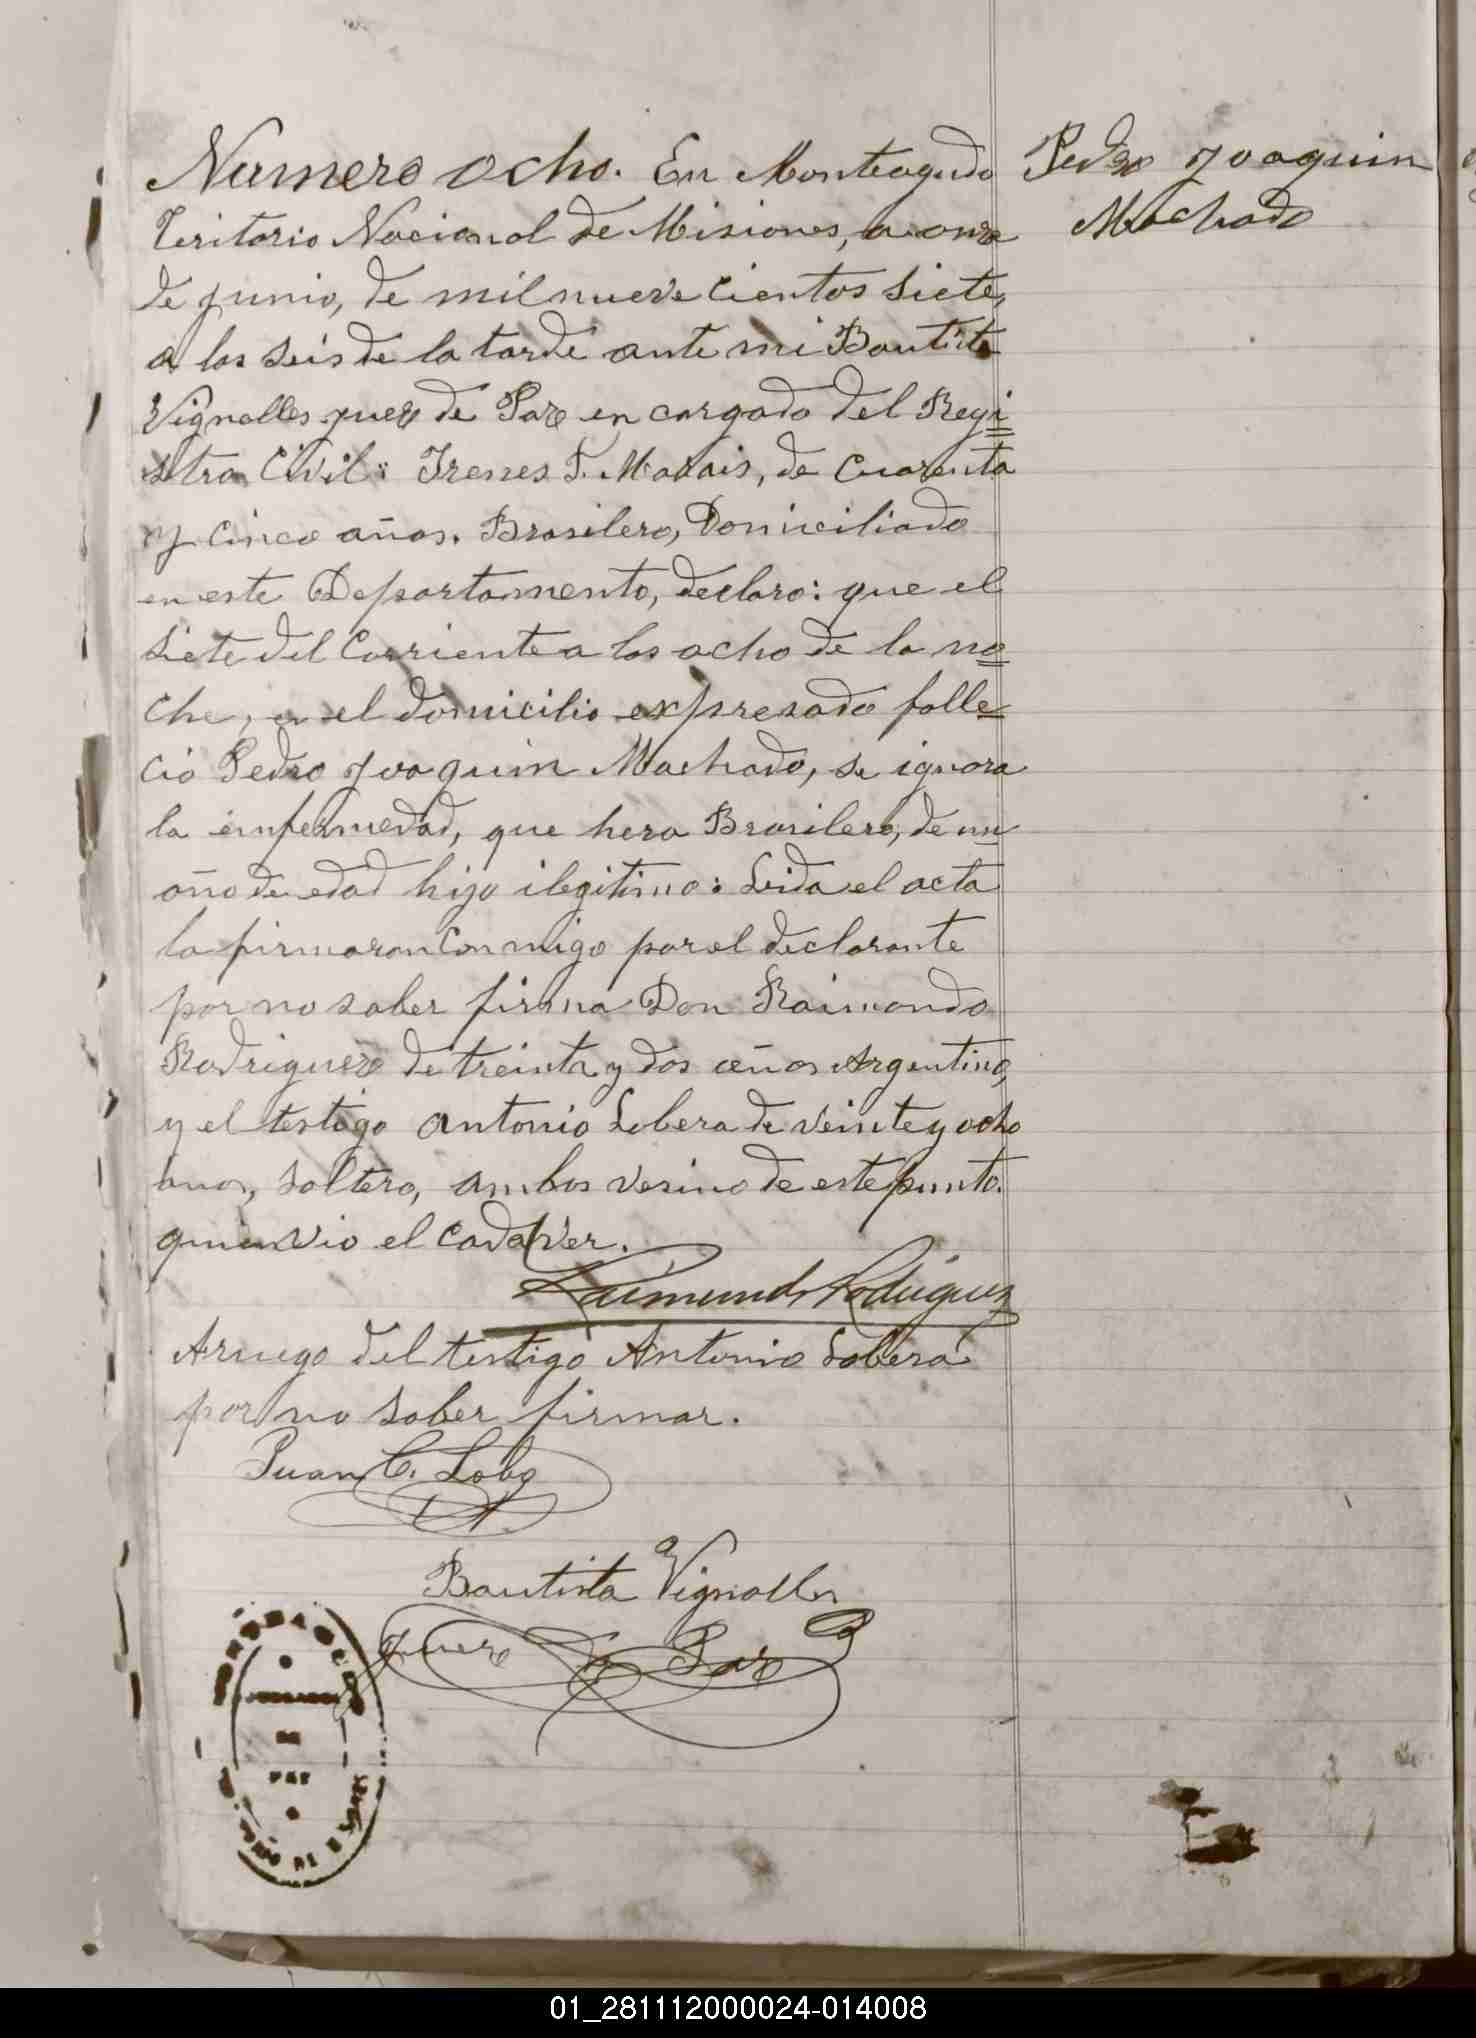 Numero ocho. En Monteagudo
Teritorio Nacional de Misiones, a onze
de junio, de mil nueve cientos siete,
a las seis de la tarde ante mi Bautista
Vignolles juez de Paz en cargado del Regi=
stro Civil: Irenes F. Morais, de cuarenta
y cinco años. Brasilero, Domiciliado
en este Departamento, declaro: que el
siete del Corriente a las ocho de la no=
che, en el domicilio expresado falle=
cio Pedro Joaquin Machado, se ignora
la emfermedad, que hera Brasilero, de un
año de edad hijo ilegitimo: Leida el acta
la firmaron conmigo por el declarante
por no saber firma Don Raimondo
Rodriguez de treinta y dos años Argentino,
y el testigo Antonio Lobera de veinte y ocho
anos, soltero, ambos vesino de este punto.
quien vio el cadaver.
Raimundo Rodriguez
Aruego del testigo Antonio Lobera
por no saber firmar.
Juan C. Lobo
Bautista Vignolles
juez de Paz
DE
PAZ
Pedro Joaquin
Machado
01_281112000024-014008